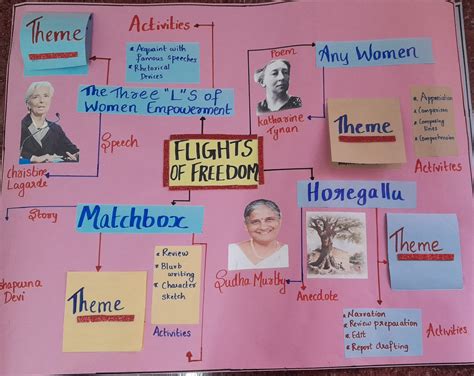 Activities
Theme
* Acquaint with
famous speeches
* Rhetorical
Devices
The Three "L"s of
Women Empowerment
Speech
Christine
Lagarde
Poem
Any Women
Katharine
Tynan
Theme
* Appreciation
* Comparison
* Composing
lines
* Comprehension
Activities
FLIGHTS
OF FREEDOM
Story
Matchbox
Devi
Theme
* Review
* Blurb
writing
* Character
sketch
Activities
Horegallu
Sudha Murthy
Anecdote
Theme
* Narration
* Review preparation
* Edit
* Report drafting
Activities